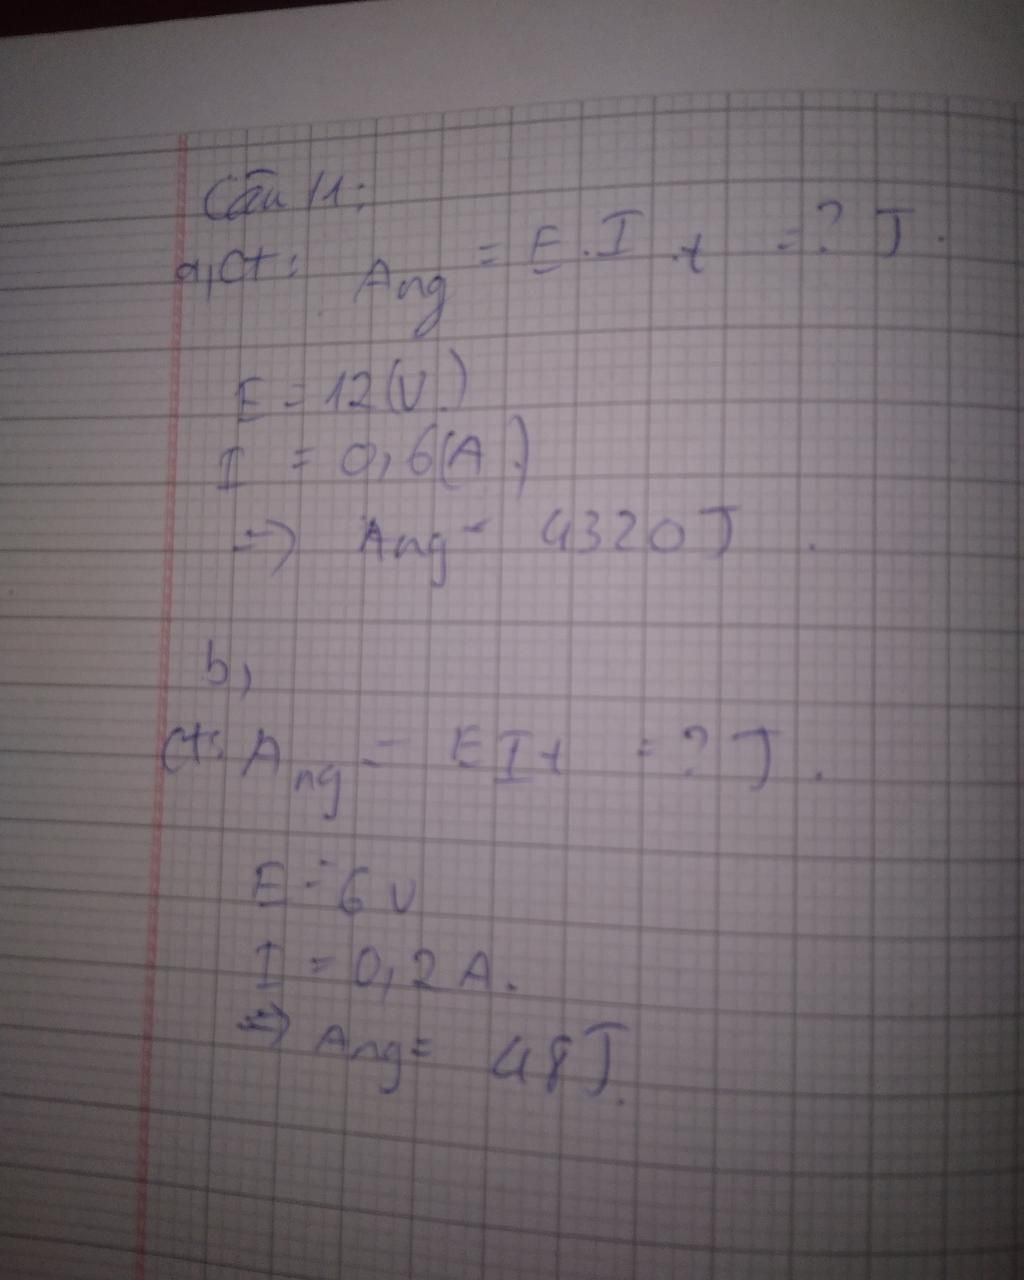 Câu 11:
a, ct: Ang = E.I.t = ? J.
E = 12(V)
I = 0,6(A)
=> Ang = 4320J.
b,
ct: Ang = EIt = ? J.
E = 6 V
I = 0,2 A.
=> Ang = 48J.